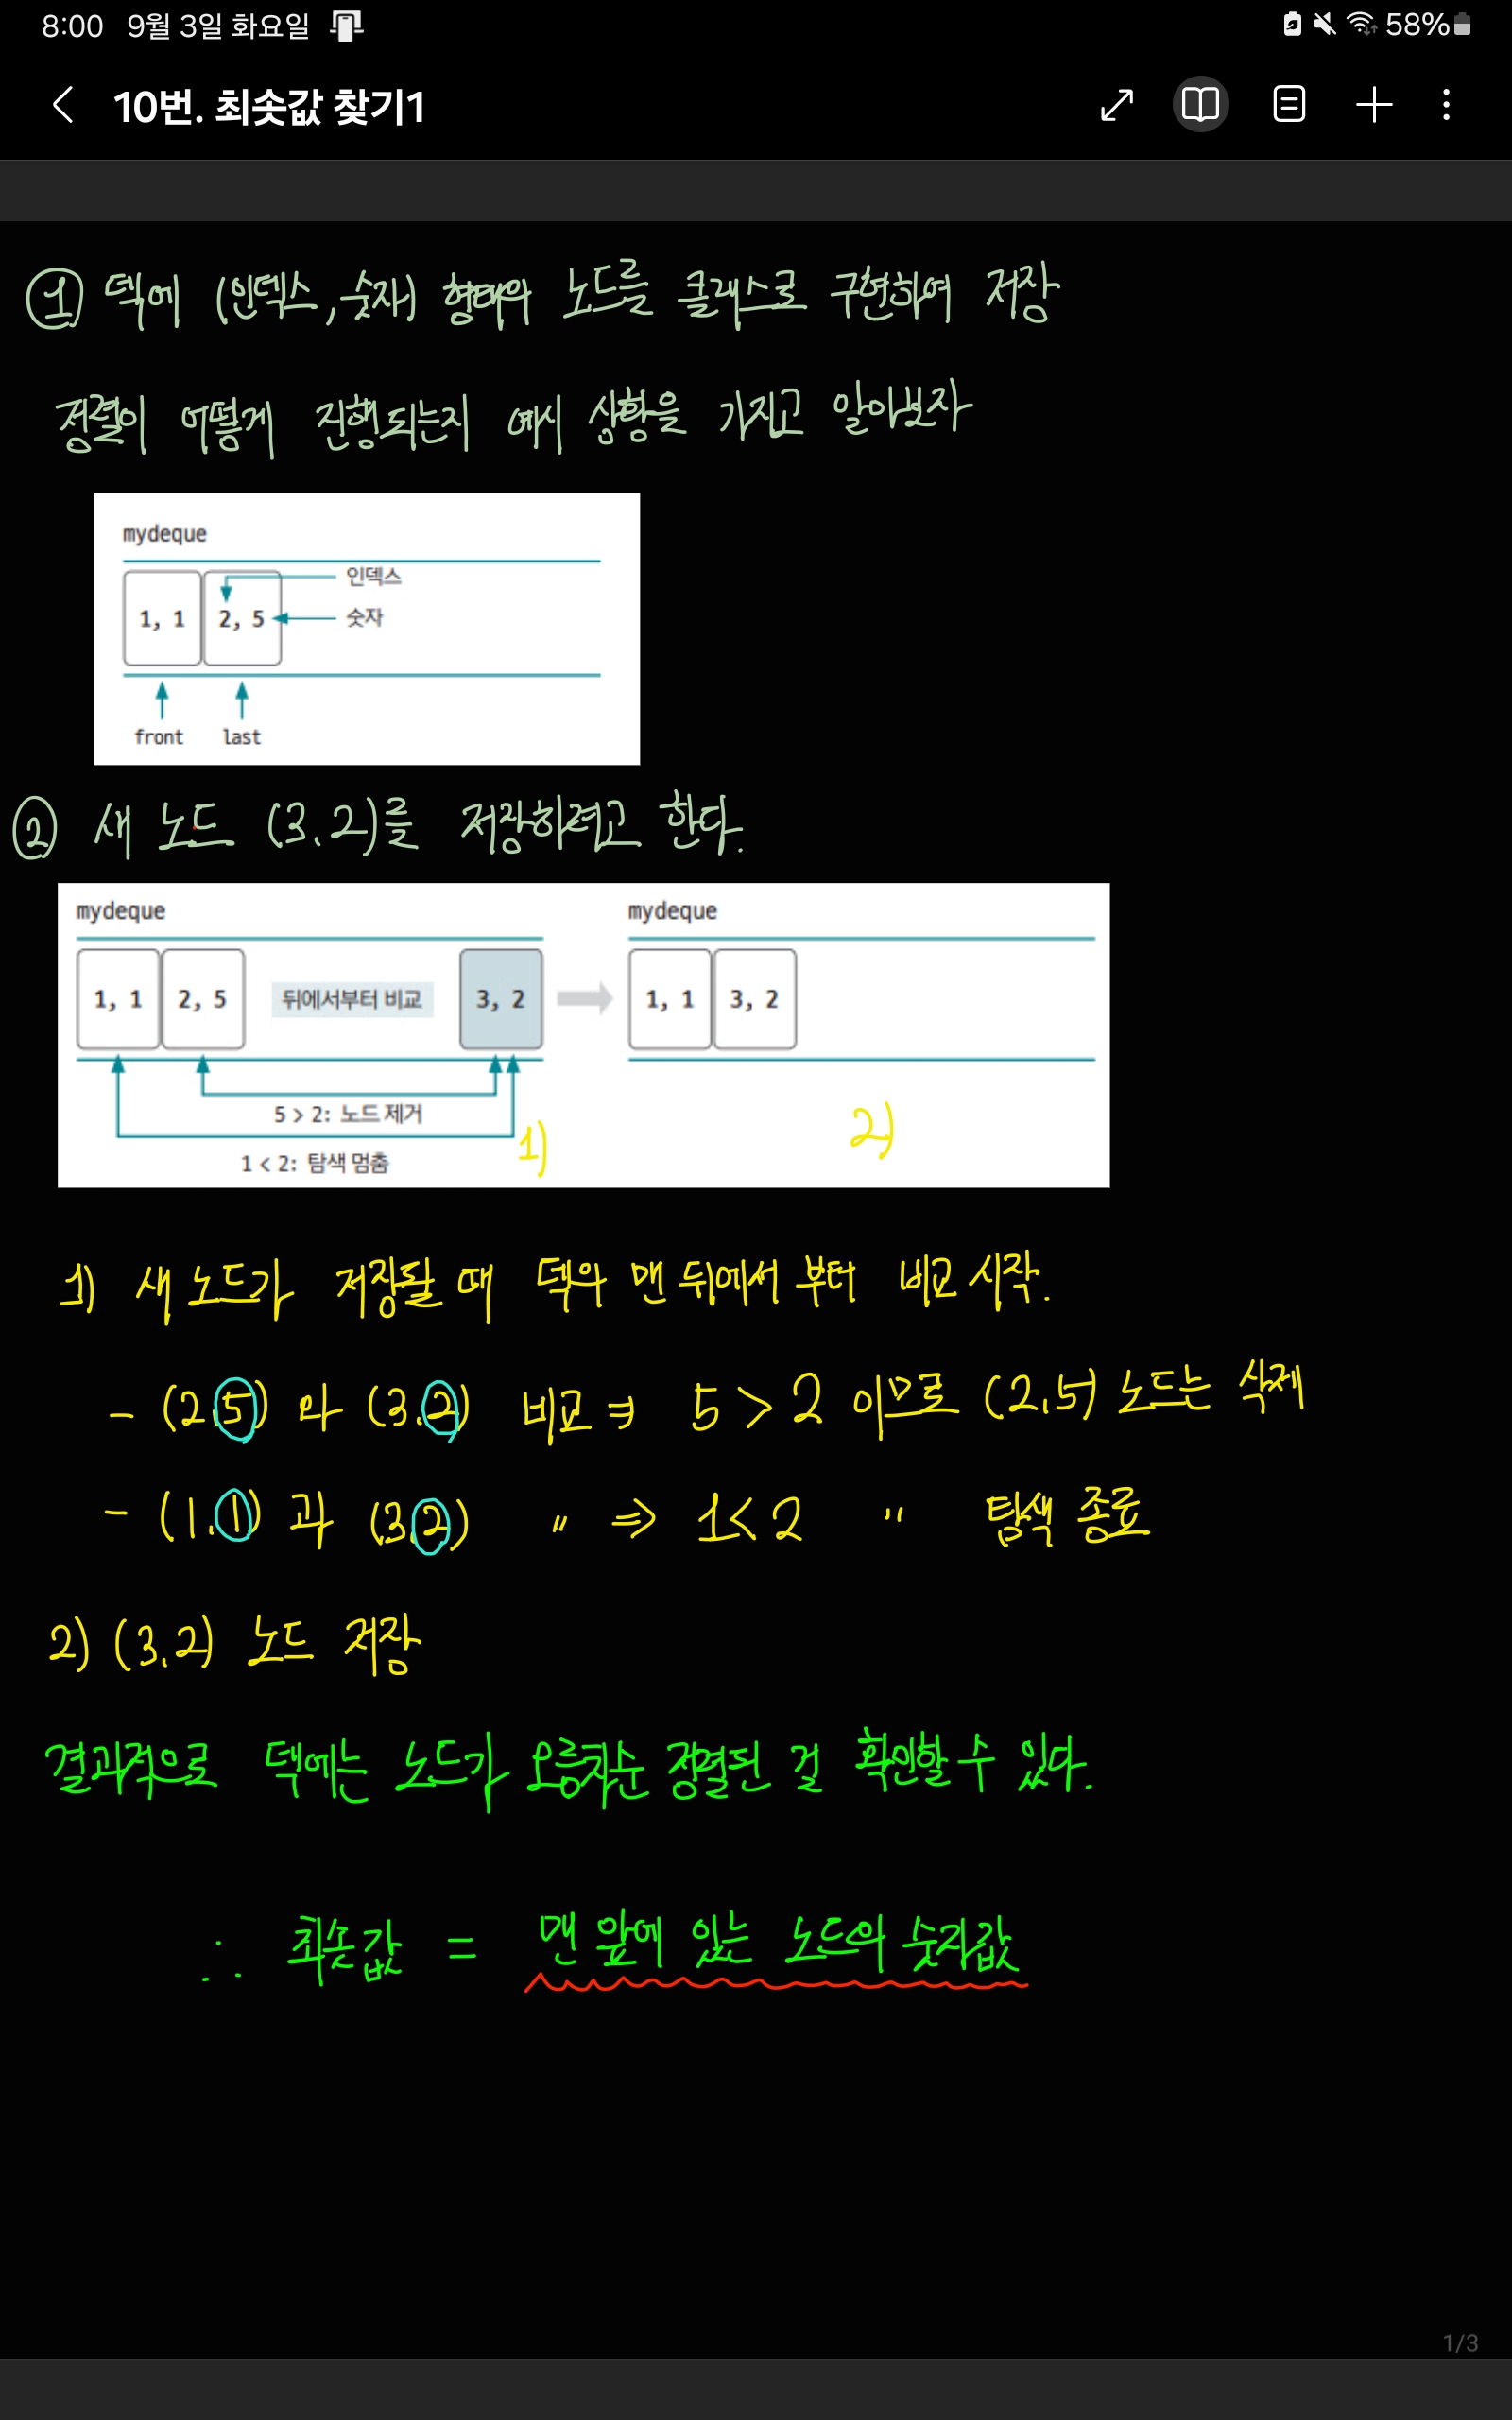 8:00 9월 3일 화요일 58%
10번. 최솟값 찾기1
① 덱에 (인덱스, 숫자) 형태의 노드를 클래스로 구현하여 저장
정렬이 어떻게 진행되는지 예시 상황을 가지고 알아보자
mydeque
인덱스
1, 1 2, 5 숫자
front last
② 새 노드 (3.2)를 저장하려고 한다.
mydeque mydeque
1, 1 2, 5 뒤에서부터 비교 3, 2 1, 1 3, 2
5 > 2: 노드 제거
1) 2)
1 < 2: 탐색 멈춤
1) 새 노드가 저장될 때 덱의 맨 뒤에서 부터 비교 시작.
- (2.5) 와 (3.2) 비교 ⇒ 5 > 2 이므로 (2.5) 노드는 삭제
- (1.1) 과 (3.2) 〃 ⇒ 1 < 2 〃 탐색 종료
2) (3.2) 노드 저장
결과적으로 덱에는 노드가 오름차순 정렬된 걸 확인할 수 있다.
∴ 최솟값 = 맨 앞에 있는 노드의 숫자값
1/3